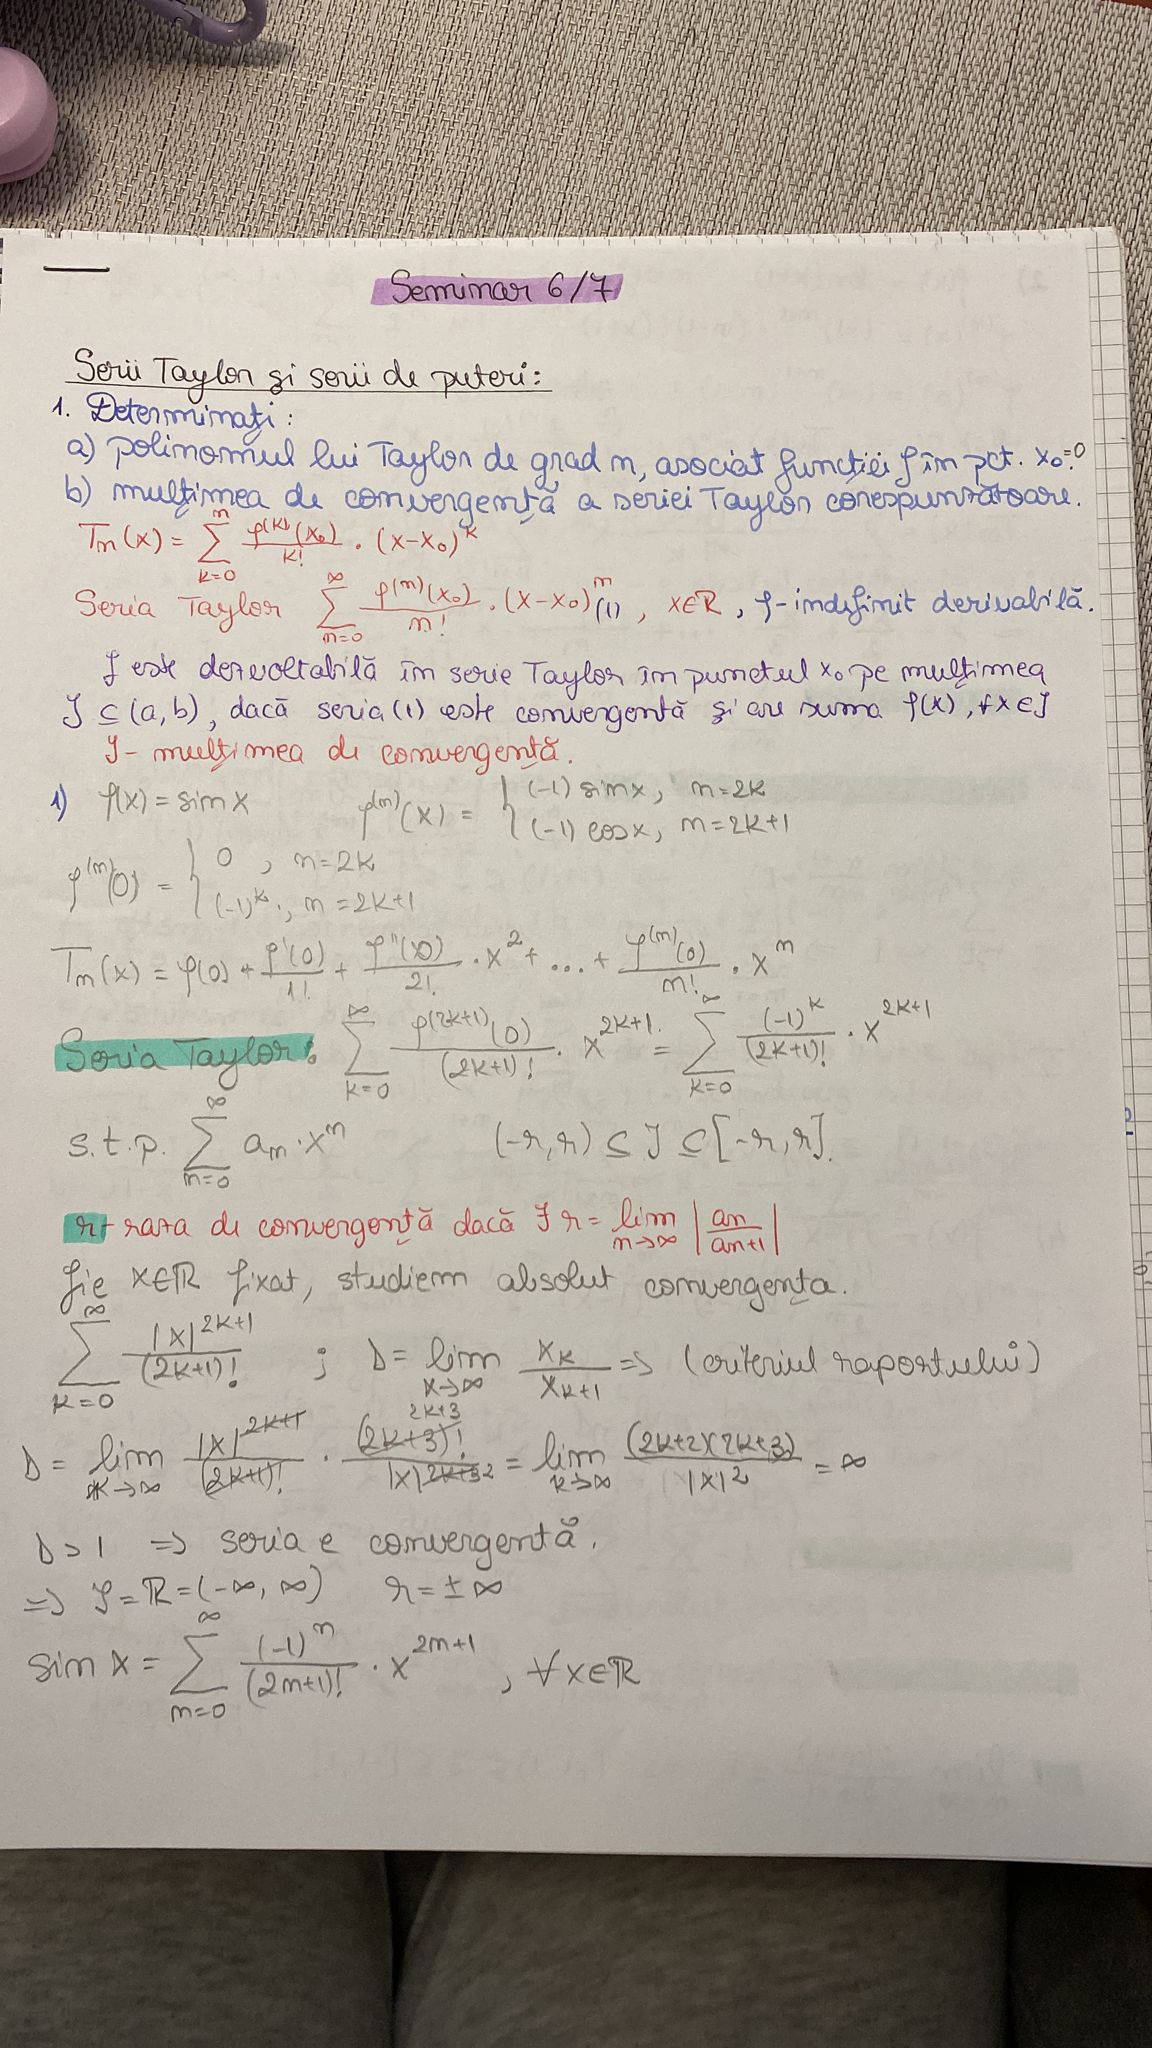 Seminar 6/7
Serii Taylor și serii de puteri:
1. Determinați:
a) polinomul lui Taylor de grad n, asociat funcției f în pct. x₀=0.
b) mulțimea de convergență a seriei Taylor corespunzătoare.
Tₙ(x) = ∑_{k=0}^{n} f^{(k)}(x₀)/k! · (x-x₀)^k
Seria Taylor ∑_{n=0}^{∞} f^{(n)}(x₀)/n! · (x-x₀)^n (1), x∈ℝ, f-indefinit derivabilă.
f este dezvoltabilă în serie Taylor în punctul x₀ pe mulțimea
J ⊆ (a,b), dacă seria (1) este convergentă și are suma f(x), ∀x∈J
J- mulțimea de convergență.
1) f(x) = sin x f^{(n)}(x) = { (-1) sin x, n=2k
(-1) cos x, n=2k+1
f^{(n)}(0) = { 0, n=2k
(-1)^k, n=2k+1
Tₙ(x) = f(0) + f'(0)/1! + f''(0)/2! · x² + ... + f^{(n)}(0)/n! · x^n
Seria Taylor: ∑_{k=0}^{∞} f^{(2k+1)}(0)/(2k+1)! · x^{2k+1} = ∑_{k=0}^{∞} (-1)^k/(2k+1)! · x^{2k+1}
s.t.p. ∑_{n=0}^{∞} aₙ·x^n (-r,r) ⊆ J ⊆ [-r,r].
r- raza de convergență dacă ∃ r = lim_{n→∞} |an/an+1|
fie x∈ℝ fixat, studiem absolut convergența.
∑_{k=0}^{∞} |x|^{2k+1}/(2k+1)! ; D = lim_{x→∞} x_k/x_{k+1} => (criteriul raportului)
D = lim_{k→∞} |x|^{2k+1}/(2k+1)! · (2k+3)!/|x|^{2k+3} = lim_{k→∞} (2k+2)(2k+3)/|x|² = ∞
D > 1 => seria e convergentă.
=> J = ℝ = (-∞, ∞) r = ±∞
sin x = ∑_{n=0}^{∞} (-1)^n/(2n+1)! · x^{2n+1}, ∀x∈ℝ